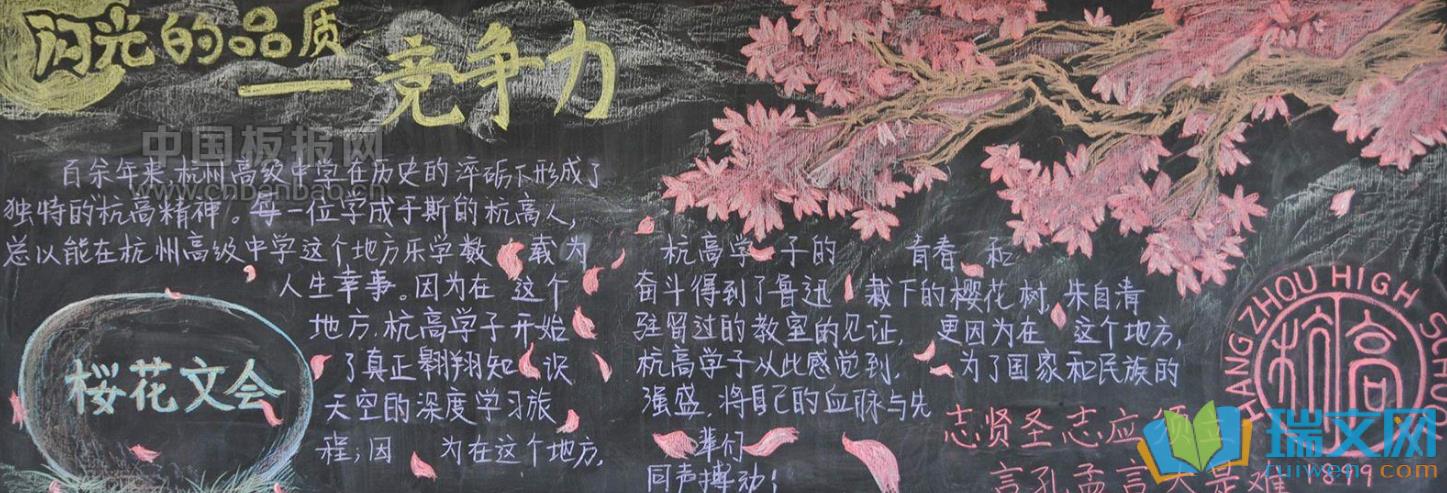 闪光的品质
——竞争力
中国板报网
www.cnbanbao.cn
百余年来,杭州高级中学在历史的淬砺下形成了
独特的杭高精神。每一位学成于斯的杭高人,
总以能在杭州高级中学这个地方乐学数载为
人生幸事。因为在这个
地方,杭高学子开始
了真正翱翔知识
天空的深度学习旅
程;因为在这个地方,
杭高学子的青春和
奋斗得到了鲁迅栽下的樱花树,朱自清
驻留过的教室的见证,更因为在这个地方,
杭高学子从此感觉到,为了国家和民族的
强盛,将自己的血脉与先
辈们
同声搏动!
樱花文会
志贤圣志应须
言孔孟言大是难
HANGZHOU HIGH SCHOOL
杭高
1899
瑞文网
ruiwen.com